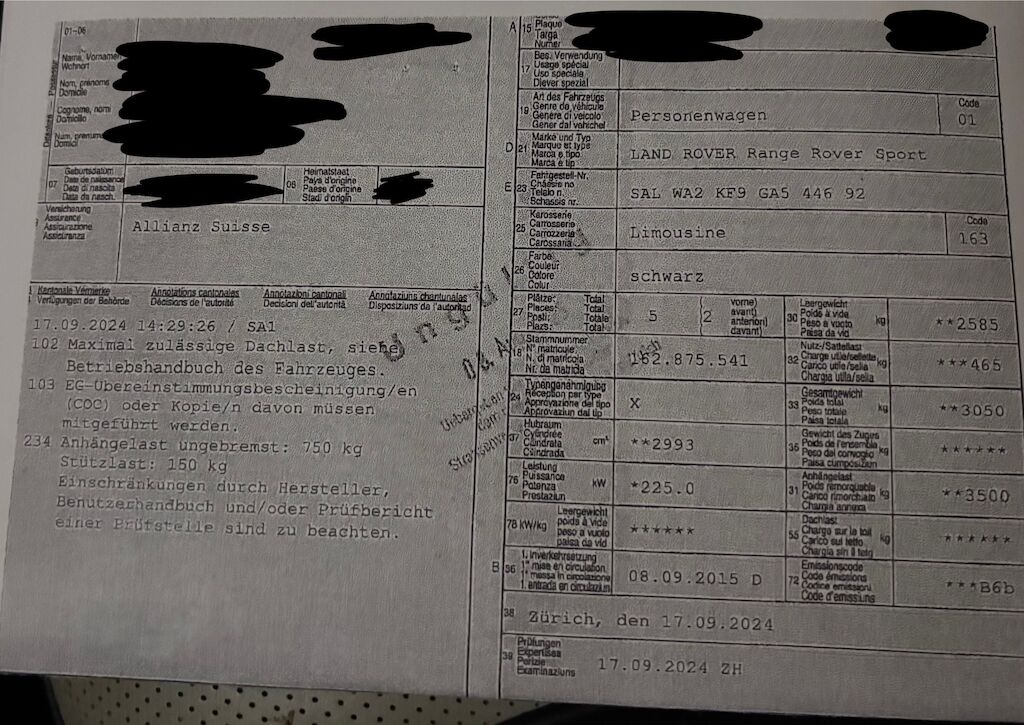 01-06
Name, Vornamen
Wohnort
Nom, prénoms
Domicile
Cognome, nomi
Domicilio
Num, prenums
Domicil
07 Geburtsdatum
Date de naissance
Data di nascita
Data da nasch.
08 Heimatstaat
Pays d'origine
Paese d'origine
Stadi d'origin
Versicherung
Assurance
Assicurazione
Assicuranza
Allianz Suisse
Kantonale Vermerke Annotations cantonales Annotazioni cantonali Annotaziuns chantunalas
Verfügungen der Behörde Décisions de l'autorité Decisioni dell'autorità Disposiziuns da l'autoritad
17.09.2024 14:29:26 / SA1
102 Maximal zulässige Dachlast, siehe
Betriebshandbuch des Fahrzeuges.
103 EG-Übereinstimmungsbescheinigung/en
(COC) oder Kopie/n davon müssen
mitgeführt werden.
234 Anhängelast ungebremst: 750 kg
Stützlast: 150 kg
Einschränkungen durch Hersteller,
Benutzerhandbuch und/oder Prüfbericht
einer Prüfstelle sind zu beachten.
A 15 Plaque
Targa
Numer
17 Bes. Verwendung
Usage spécial
Uso speciale
Diever spezial
19 Art des Fahrzeugs
Genre de véhicule
Genere di veicolo
Gener dal vehichel
Personenwagen
Code
01
D 21 Marke und Typ
Marque et type
Marca e tipo
Marca e tip
LAND ROVER Range Rover Sport
E 23 Fahrgestell-Nr.
Châssis no
Telaio n.
Schassis nr.
SAL WA2 KF9 GA5 446 92
25 Karosserie
Carrosserie
Carrozzeria
Carossaria
Limousine
Code
163
26 Farbe
Couleur
Colore
Colur
schwarz
27 Plätze: Total
Places: Total
Posti: Totale
Plazs: Total
5 (2 vorne)
avant)
anteriori)
davant)
30 Leergewicht
Poids à vide
Peso a vuoto
Paisa da vid
kg
**2585
18 Stammnummer
N° matricule
N. di matricola
Nr. da matricla
162.875.541
32 Nutz-/Sattellast
Charge utile/sellette
Carico utile/sella
Chargia utila/sella
kg
***465
24 Typengenehmigung
Réception par type
Approvazione del tipo
Approvaziun dal tip
X
33 Gesamtgewicht
Poids total
Peso totale
Paisa totala
kg
**3050
37 Hubraum
Cylindrée
Cilindrata
Cilindrada
cm³
**2993
35 Gewicht des Zuges
Poids de l'ensemble
Peso del convoglio
Paisa cumposiziun
kg
******
76 Leistung
Puissance
Potenza
Prestaziun
kW
*225.0
31 Anhängelast
Poids remorquable
Carico rimorchiato
Chargia annexa
kg
**3500
78 kW/kg Leergewicht
poids à vide
peso a vuoto
paisa da vid
******
55 Dachlast
Charge sur le toit
Carico sul tetto
Chargia sin il tetg
kg
******
B 36 1. Inverkehrsetzung
1re mise en circulation
1a messa in circolazione
1. entrada en circulaziun
08.09.2015 D
72 Emissionscode
Code émissions
Codice emissioni
Code d'emissiuns
***B6b
38 Zürich, den 17.09.2024
39 Prüfungen
Expertises
Perizie
Examinaziuns
17.09.2024 ZH